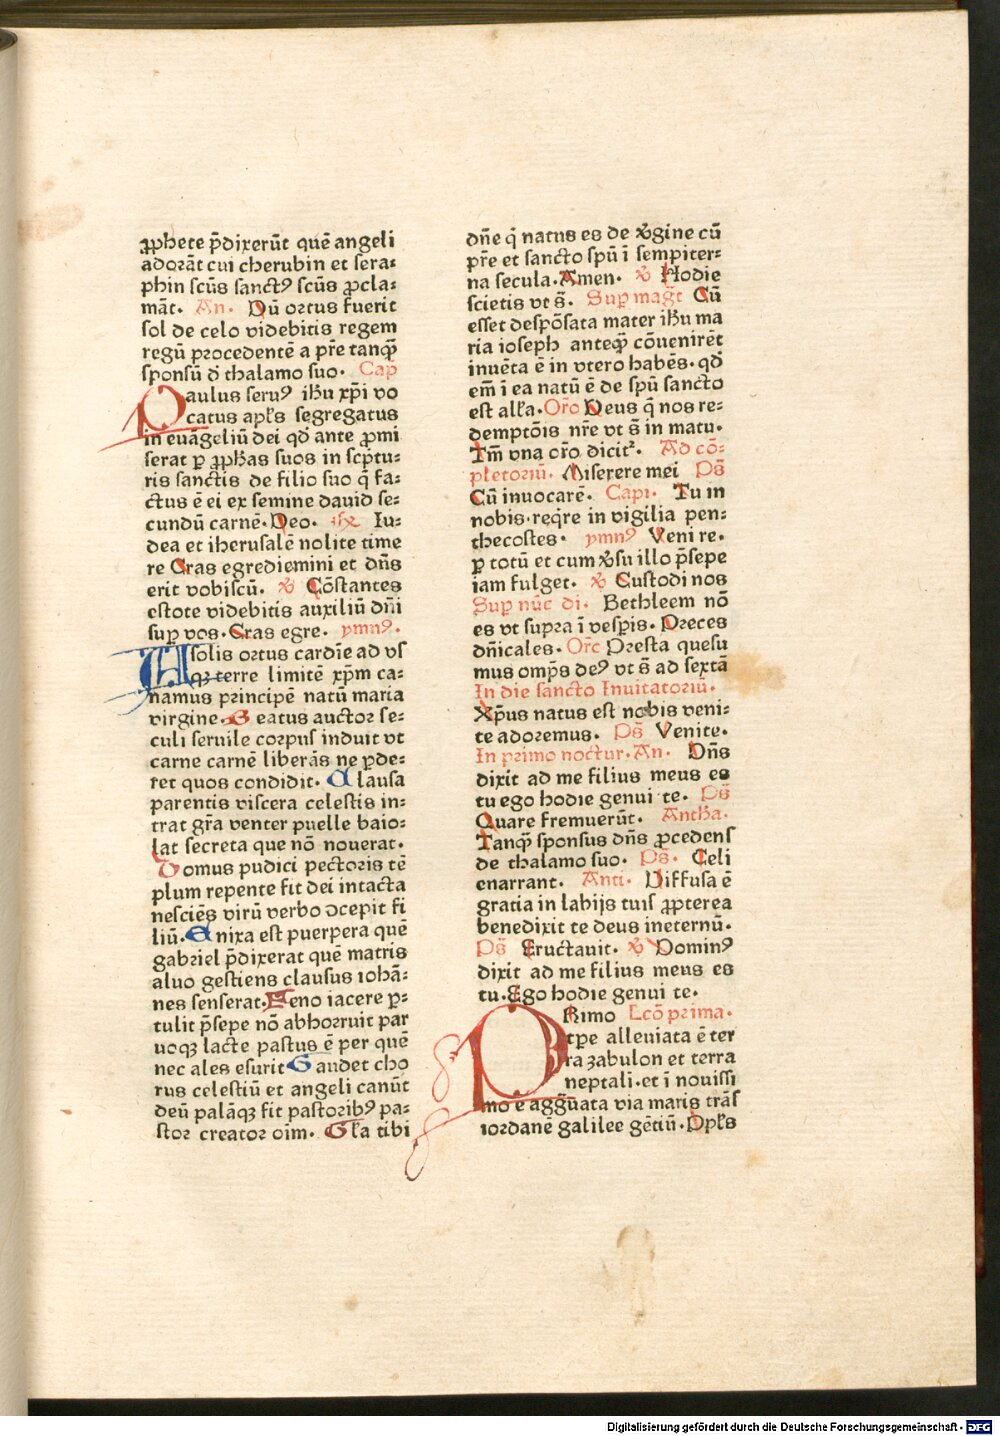 ꝓphete p̄dixerūt quē angeli
adorāt cui cherubin et sera⸗
phin scūs sanctꝰ scūs ꝓcla⸗
māt. An. Dū ortus fuerit
sol de celo videbitis regem
regū procedentē a pr̄e tanqͣ̄
sponsū d̄ thalamo suo. Cap̄
Paulus seruꝰ ih̄u xp̄i vo
catus apl̄s segregatus
in euāgeliū dei qd̄ ante ꝓmi
serat ꝑ ꝓph̄as suos in scp̄tu⸗
ris sanctis de filio suo q̄ fa⸗
ctus ē ei ex semine dauid se⸗
cundū carnē. Deo. Iu⸗
dea et iherusalē nolite time
re Cras egrediemini et dn̄s
erit vobiscū. ℣ Cōstantes
estote videbitis auxiliū dn̄i
suꝑ vos. Cras egre. ymnꝰ.
A solis ortus cardīe ad vs
qꝫ terre limitē xp̄m ca⸗
namus principē natū maria
virgine. Beatus auctor se⸗
culi seruile corpus induit vt
carne carnē liberās ne ꝑde⸗
ret quos condidit. Clausa
parentis viscera celestis in⸗
trat gr̄a venter puelle baio⸗
lat secreta que nō nouerat.
Domus pudici pectoris tē
plum repente fit dei intacta
nesciēs virū verbo ↄcepit fi
liū. Enixa est puerpera quē
gabriel p̄dixerat quē matris
aluo gestiens clausus iohā⸗
nes senserat. Feno iacere ꝑ⸗
tulit p̄sepe nō abhorruit par
uoqꝫ lacte pastus ē per quē
nec ales esurit Gaudet cho
rus celestiū et angeli canūt
deū palāqꝫ fit pastoribꝰ pa⸗
stor creator oīm. Gl̄a tibi
dn̄e q̄ natus es de ℣gine cū
pr̄e et sancto spū ī sempiter⸗
na secula. Amen. ℣ Hodie
scietis vt s̄. Suꝑ mag̅t Cū
esset despōsata mater ih̄u ma
ria ioseph anteqͣ̄ cōuenirēt
inuēta ē in vtero habēs. qd̄
em̄ ī ea natū ē de spū sancto
est all̄a. Or̄o Deus q̄ nos re⸗
demptōis nr̄e vt s̄ in matu.
Tm̄ vna or̄o dicit᷑. Ad cō⸗
pletoriū. Miserere mei Ps̄
Cū inuocarē. Capi. Tu in
nobis. reqͥre in vigilia pen⸗
thecostes. ymnꝰ Veni re.
ꝑ totū et cum ℣su illo p̄sepe
iam fulget. ℣ Custodi nos
Suꝑ nūc di. Bethleem nō
es vt supra ī vesꝑis. Preces
dn̄icales. Or̄o Presta quesu
mus omp̄s deꝰ vt s̄ ad sextā
In die sancto Inuitatoriū.
Xp̄us natus est nobis veni⸗
te adoremus. Ps̄ Venite.
In primo noctur. An. Dn̄s
dixit ad me filius meus es
tu ego hodie genui te. Ps̄
Quare fremuerūt. Antħa.
Tanqͣ̄ sponsus dn̄s ꝓcedens
de thalamo suo. Ps̄. Celi
enarrant. Anti. Diffusa ē
gratia in labijs tuis ꝓpterea
benedixit te deus ineternū.
Ps̄ Eructauit. ℣ Dominꝰ
dixit ad me filius meus es
tu. Ego hodie genui te.
PRimo Lcō prima.
tp̄e alleuiata ē ter
ra zabulon et terra
neptali. et ī nouissi
mo ē aggͣ̄uata via maris trās
iordanē galilee gētiū. Ppl̄s
Digitalisierung gefördert durch die Deutsche Forschungsgemeinschaft - DFG